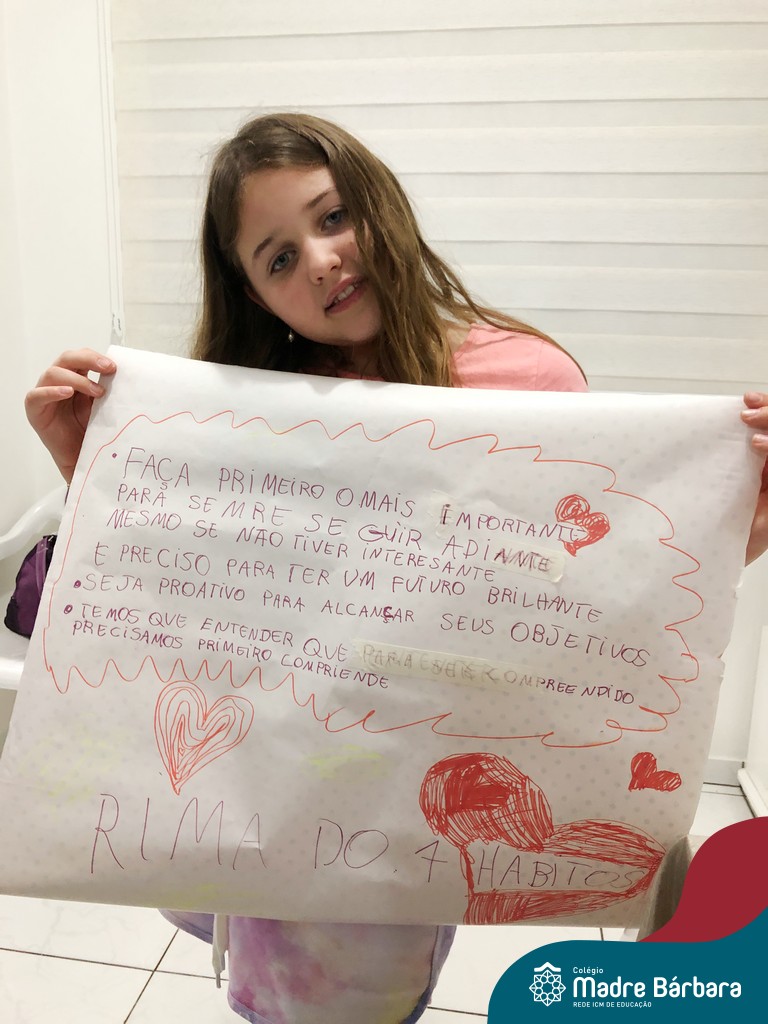 • FAÇA PRIMEIRO O MAIS IMPORTANTE
PARÁ SEMRE SE GUIR ADIANTE
MESMO SE NÃO TIVER INTERESANTE
E PRECISO PARA TER UM FUTURO BRILHANTE
• SEJA PROATIVO PARA ALCANSAR SEUS OBJETIVOS
• TEMOS QUE ENTENDER QUE PARA COMPREENDIDO
PRECISAMOS PRIMEIRO COMPRIENDE
RIMA DO. 7 HABITOS
Colégio
Madre Bárbara
REDE ICM DE EDUCAÇÃO